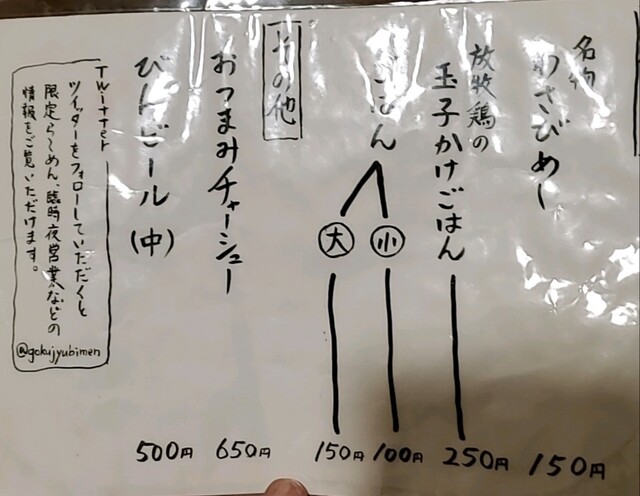 名物
わさびめし
150円
放牧鶏の
玉子かけごはん
250円
ごはん
小
100円
大
150円
その他
おつまみチャーシュー
650円
びんビール(中)
500円
Twitter
ツイッターをフォローしていただくと
限定らーめん、臨時夜営業などの
情報をご覧いただけます。
@gokujyubimen